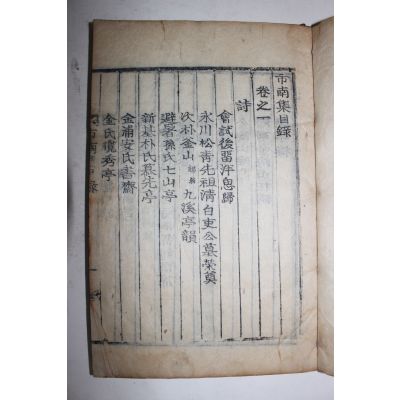 市南集目錄
卷之一
詩
會試後留泮思歸
永川松靑先祖淸白吏公墓榮奠
次朴釜山 九溪亭韻
避暑孫氏七山亭
新基朴氏慕先亭
金浦安氏書齋
金氏 秀亭
市南 錄